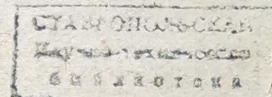 СТАВРОПОЛЬСКАЯ
Научно-техническая
библиотека